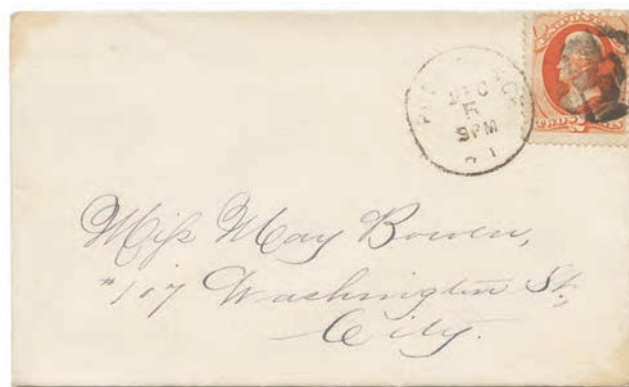 DEC
5
9PM
Miss May Bowen,
#107 Washington St,
City.